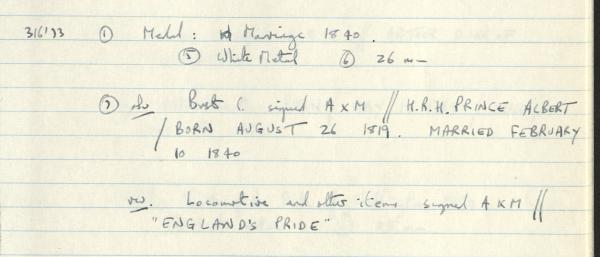 316'73 ① Medal: Marriage 1840.
⑤ White Metal ⑥ 26 mm
⑦ obv Bust l. signed A x M // H.R.H. PRINCE ALBERT
/ BORN AUGUST 26 1819. MARRIED FEBRUARY
10 1840
rev. Locomotive and other items signed A x M //
"ENGLAND'S PRIDE"